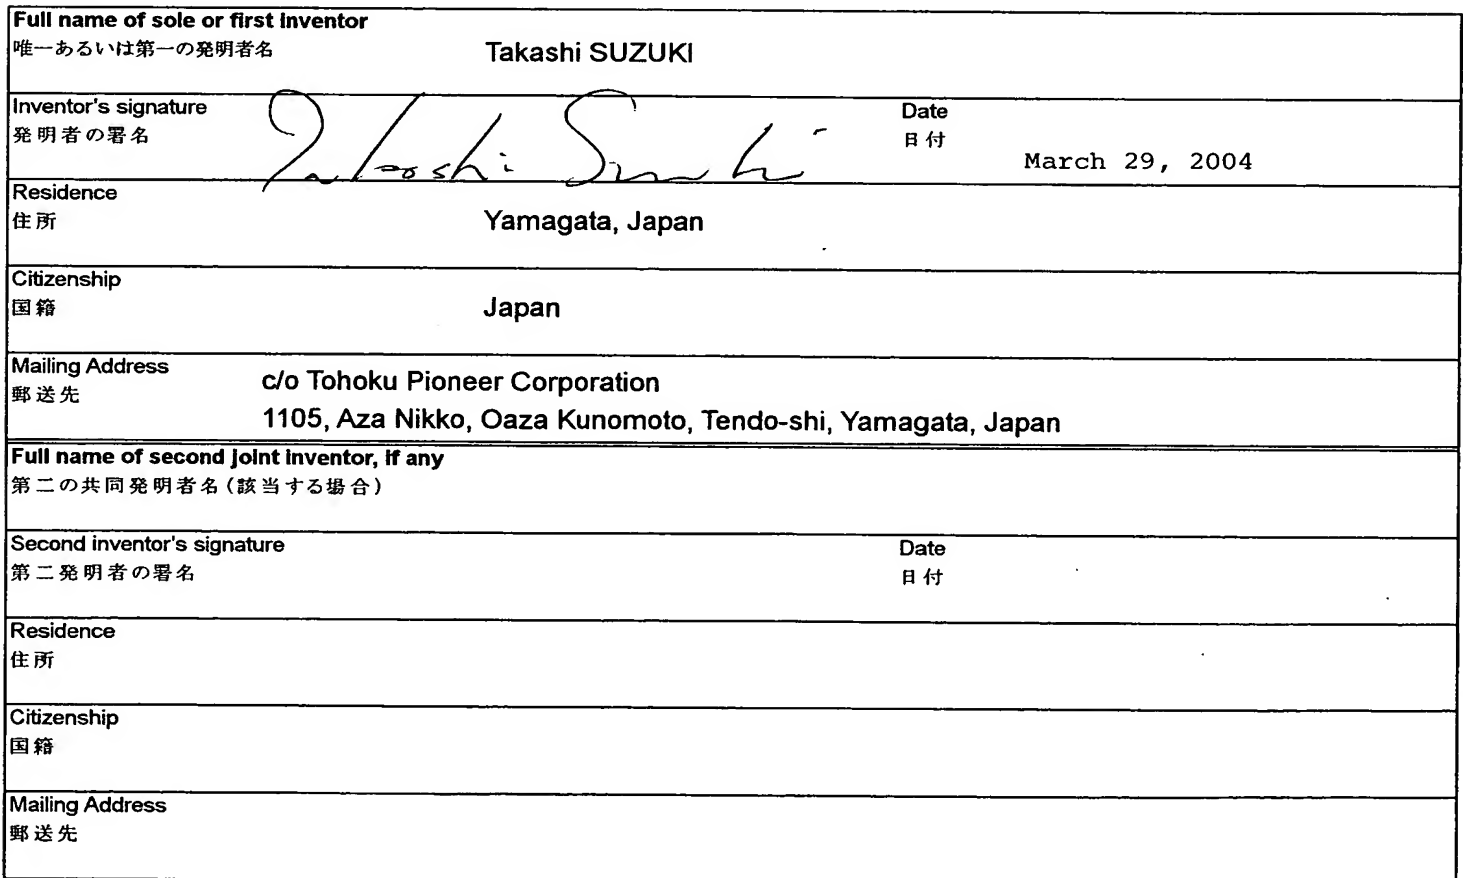 Full name of sole or first inventor
唯一あるいは第一の発明者名
Takashi SUZUKI
Inventor's signature
発明者の署名
Takashi Suzuki
Date
日付
March 29, 2004
Residence
住所
Yamagata, Japan
Citizenship
国籍
Japan
Mailing Address
郵送先
c/o Tohoku Pioneer Corporation
1105, Aza Nikko, Oaza Kunomoto, Tendo-shi, Yamagata, Japan
Full name of second joint inventor, if any
第二の共同発明者名(該当する場合)
Second inventor's signature
第二発明者の署名
Date
日付
Residence
住所
Citizenship
国籍
Mailing Address
郵送先